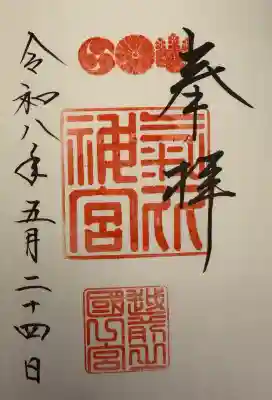 奉拝
氣比
神宮
越前之
國一宮
令和八年五月二十四日